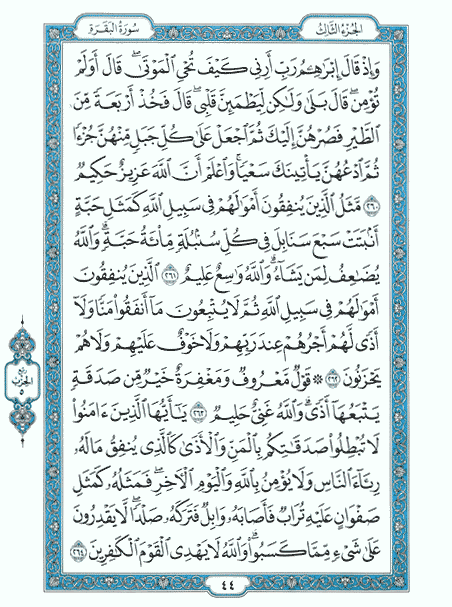 الجزء الثالث
سورة البقرة
وَإِذْ قَالَ إِبْرَاهِـۧمُ رَبِّ أَرِنِى كَيْفَ تُحْىِ الْمَوْتَىٰ ۖ قَالَ أَوَلَمْ
تُؤْمِن ۖ قَالَ بَلَىٰ وَلَـٰكِن لِّيَطْمَئِنَّ قَلْبِى ۖ قَالَ فَخُذْ أَرْبَعَةً مِّنَ
الطَّيْرِ فَصُرْهُنَّ إِلَيْكَ ثُمَّ اجْعَلْ عَلَىٰ كُلِّ جَبَلٍ مِّنْهُنَّ جُزْءًا
ثُمَّ ادْعُهُنَّ يَأْتِينَكَ سَعْيًا ۚ وَاعْلَمْ أَنَّ اللَّهَ عَزِيزٌ حَكِيمٌ
٢٦٠ مَّثَلُ الَّذِينَ يُنفِقُونَ أَمْوَٰلَهُمْ فِى سَبِيلِ اللَّهِ كَمَثَلِ حَبَّةٍ
أَنۢبَتَتْ سَبْعَ سَنَابِلَ فِى كُلِّ سُنۢبُلَةٍ مِّا۟ئَةُ حَبَّةٍ ۗ وَاللَّهُ
يُضَـٰعِفُ لِمَن يَشَآءُ ۗ وَاللَّهُ وَٰسِعٌ عَلِيمٌ ٢٦١ الَّذِينَ يُنفِقُونَ
أَمْوَٰلَهُمْ فِى سَبِيلِ اللَّهِ ثُمَّ لَا يُتْبِعُونَ مَآ أَنفَقُوا۟ مَنًّا وَلَآ
أَذًى ۙ لَّهُمْ أَجْرُهُمْ عِندَ رَبِّهِمْ وَلَا خَوْفٌ عَلَيْهِمْ وَلَا هُمْ
يَحْزَنُونَ ٢٦٢ ۞ قَوْلٌ مَّعْرُوفٌ وَمَغْفِرَةٌ خَيْرٌ مِّن صَدَقَةٍ
يَتْبَعُهَآ أَذًى ۗ وَاللَّهُ غَنِىٌّ حَلِيمٌ ٢٦٣ يَـٰٓأَيُّهَا الَّذِينَ ءَامَنُوا۟
لَا تُبْطِلُوا۟ صَدَقَـٰتِكُم بِالْمَنِّ وَالْأَذَىٰ كَالَّذِى يُنفِقُ مَالَهُۥ
رِئَآءَ النَّاسِ وَلَا يُؤْمِنُ بِاللَّهِ وَالْيَوْمِ الْـَٔاخِرِ ۖ فَمَثَلُهُۥ كَمَثَلِ
صَفْوَانٍ عَلَيْهِ تُرَابٌ فَأَصَابَهُۥ وَابِلٌ فَتَرَكَهُۥ صَلْدًا ۖ لَّا يَقْدِرُونَ
عَلَىٰ شَىْءٍ مِّمَّا كَسَبُوا۟ ۗ وَاللَّهُ لَا يَهْدِى الْقَوْمَ الْكَـٰفِرِينَ ٢٦٤
ربع
الحزب
٥
٤٤